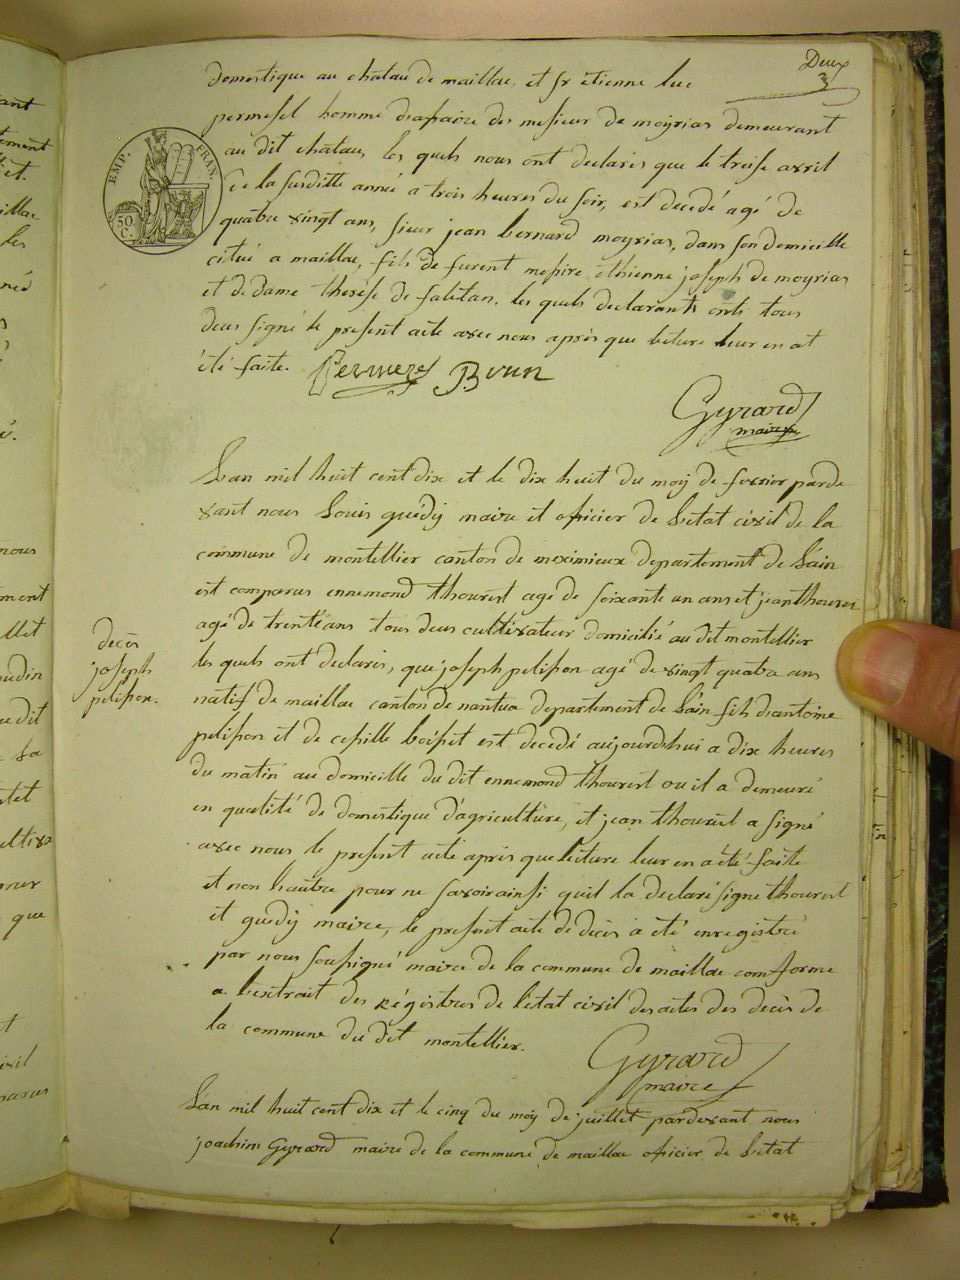 Deux
3
domestique au château de maillac, et sr étienne luc
permesel homme d'afaire des mesieur de moyrias demeurant
au dit chateau, les quels nous ont declarés que le treise avril
de la susditte année a trois heures du soir, est decedé agé de
quatre vingt ans, sieur jean bernard moyrias, dans son domicille
citué a maillac, fils de furent mesire éthienne joseph de moyrias
et de dame therése de faletan. les quels declarants onts tous
deux signé le present acte avec nous après que lecture leur en at
été faite. Permezel Brun
Gyrard
maire
EMP. FRAN.
50
C.
Lan mil huit cent dix et le dix huit du moy de fevrier parde
vant nous Louis guédy maire et oficier de Letat civil de la
commune de montellier canton de meximieux departement de L'ain
est comparus ennemond thouret agé de soixante un ans et jean thouret
agé de trente ans tous deux cultivateur domicilié au dit montellier
les quels ont declarés, que joseph pelisson agé de vingt quatre ans
natif de maillac canton de nantua departement de L'ain fils d'antoine
pelisson et de cesille est decedé aujourdhui a dix heures
du matin au domicille du dit ennemond thouret ou il a demeuré
en qualité de domestique d'agriculture, et jean thouret a signé
avec nous le present acte après que lecture leur en a été faite
et non l'autre pour ne savoir ainsi quil la declaré signé thouret
et guedy maire, le present acte de decès a été enregistré
par nous sousigné maire de la commune de maillac comforme
a l'extrait des régistres de l'état civil des actes des decès de
la commune du dit montellier.
Gyrard
maire
decès
joseph
pelisson.
Lan mil huit cent dix et le cinq du moy de juillet pardevant nous
joachim Gyrard maire de la commune de maillac oficier de Letat